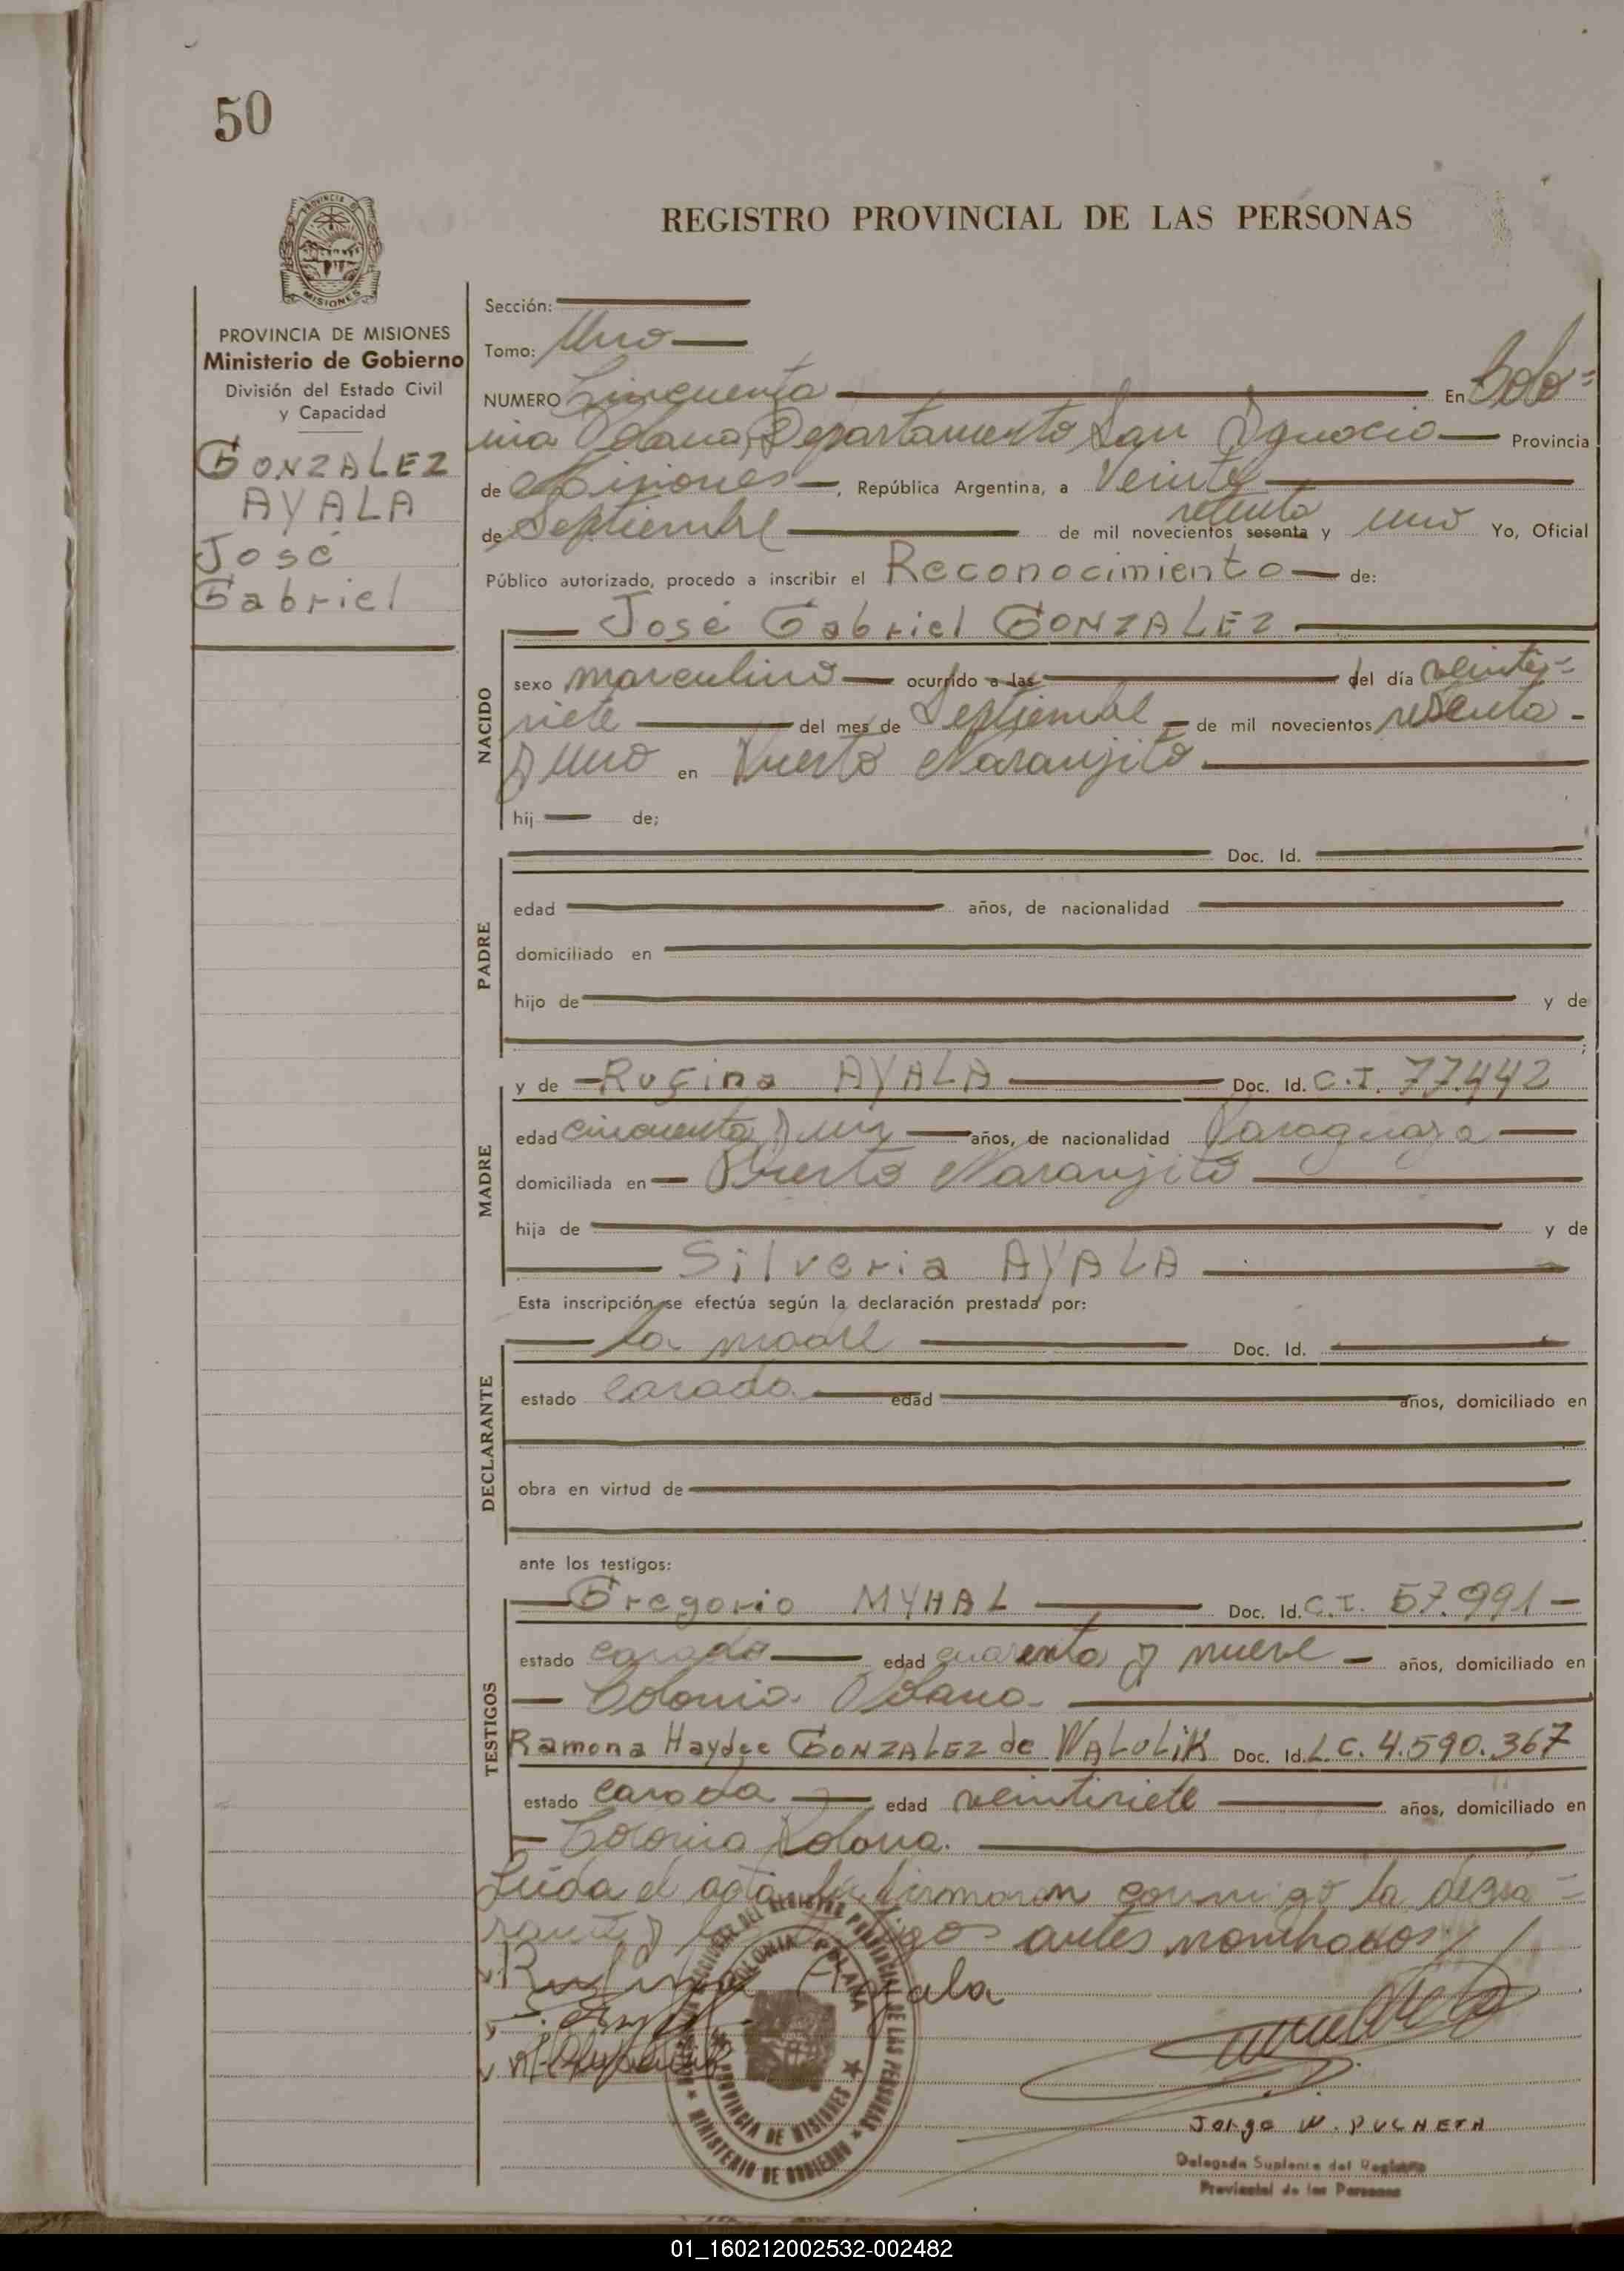 50
PROVINCIA DE
MISIONES
REGISTRO PROVINCIAL DE LAS PERSONAS
PROVINCIA DE MISIONES
Ministerio de Gobierno
División del Estado Civil
y Capacidad
GONZALEZ
AYALA
José
Gabriel
Sección:
Tomo: Uno
NUMERO Cincuenta En Colo=
nia Polana, Departamento San Ignacio Provincia
de Misiones, República Argentina, a Veinte
setenta
de Septiembre de mil novecientos sesenta y uno Yo, Oficial
Público autorizado, procedo a inscribir el Reconocimiento de:
José Gabriel GONZALEZ
NACIDO
sexo masculino ocurrido a las del día veinti=
siete del mes de Septiembre de mil novecientos
y uno en Puerto Naranjito
hij de;
PADRE
Doc. Id.
edad años, de nacionalidad
domiciliado en
hijo de y de
;
MADRE
y de Rufina AYALA Doc. Id. C.I. 77.442
edad cincuenta y un años, de nacionalidad Paraguaya
domiciliada en Puerto Naranjito
hija de y de
Silveria AYALA
Esta inscripción se efectúa según la declaración prestada por:
DECLARANTE
la madre Doc. Id.
estado casada edad años, domiciliado en
obra en virtud de
ante los testigos:
TESTIGOS
Gregorio MYHAL Doc. Id. C.I. 57.991
estado casado edad cuarenta y nueve años, domiciliado en
Colonia Polana
Ramona Haydee GONZALEZ de WALULIK Doc. Id. L.C. 4.590.367
estado casada edad veintisiete años, domiciliado en
Colonia Polana.
Leída el acta la firmaron conmigo la decla=
rante y los testigos antes nombrados
Rufina Ayala
COLONIA POLANA
PROVINCIA DE MISIONES
MINISTERIO DE GOBIERNO
Jorge W. PUCHETA
Delegado Suplente del Registro
Provincial de las Personas
01_160212002532-002482